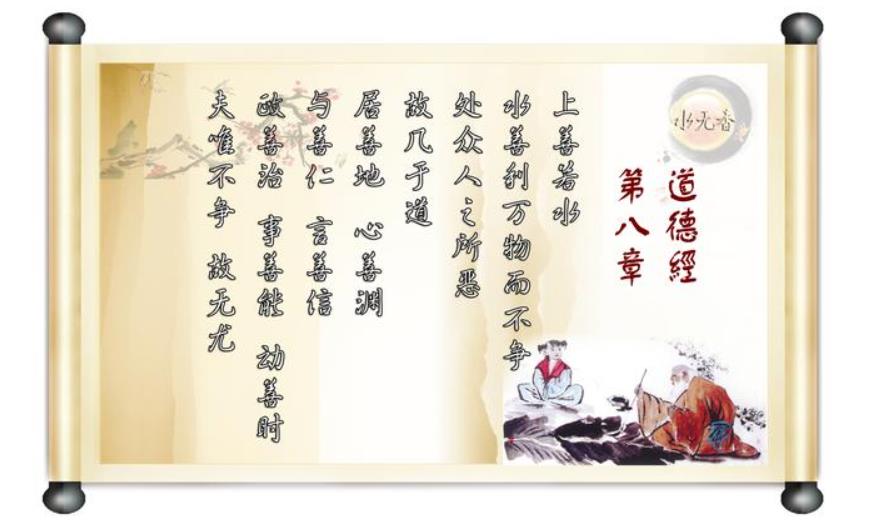 水无香
道德經
第八章
上善若水
水善利万物而不争
处众人之所恶
故几于道
居善地 心善渊
与善仁 言善信
政善治 事善能 动善时
夫唯不争 故无尤